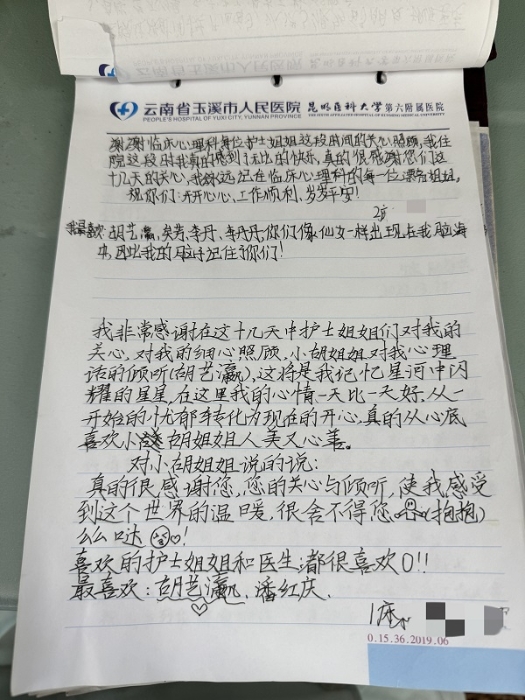 云南省玉溪市人民医院 昆明医科大学第六附属医院
PEOPLE'S HOSPITAL OF YUXI CITY, YUNNAN PROVINCE
谢谢临床心理科每位护士姐姐这段时间的关心照顾,我住
院这段时我真的感到无比的快乐,真的很感谢您们这
十几天的关心,我永远记在临床心理科的每一位漂亮姐姐,
祝你们:开开心心,工作顺利,岁岁平安!
我最喜欢:胡艺瀛,李丹,李丹丹,你们像仙女一样出现在我脑海
里,因此我的脑子记住了你们!
我非常感谢在这十几天中护士姐姐们对我的
关心,对我的细心照顾,小胡姐姐对我心理
话的倾听(胡艺瀛),这将是我记忆星河中闪
耀的星星,在这里我的心情一天比一天好,从一
开始的忧郁转化为现在的开心,真的从心底
喜欢小胡姐姐人美又心善。
对小胡姐姐说的说:
真的很感谢您,您的关心与倾听,使我感受
到这个世界的温暖,很舍不得您(抱抱)
么么哒!
喜欢的护士姐姐和医生:都很喜欢O!!
最喜欢:胡艺瀛,潘红庆.
1床
0.15.36.2019.06